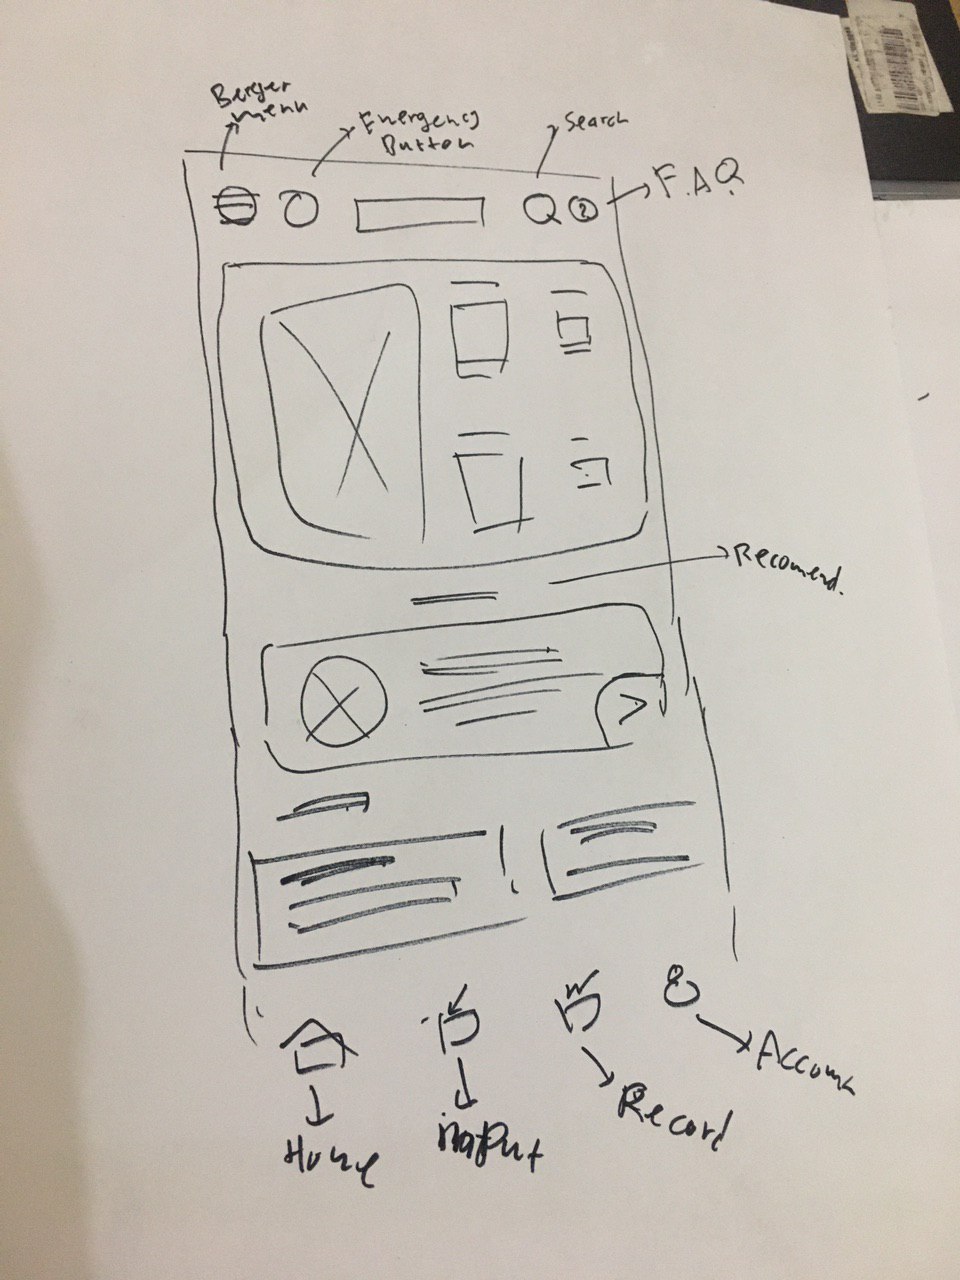 Berger
menu
Emergency
Button
Search
F.A.Q
?
Recomend.
Home
Input
Record